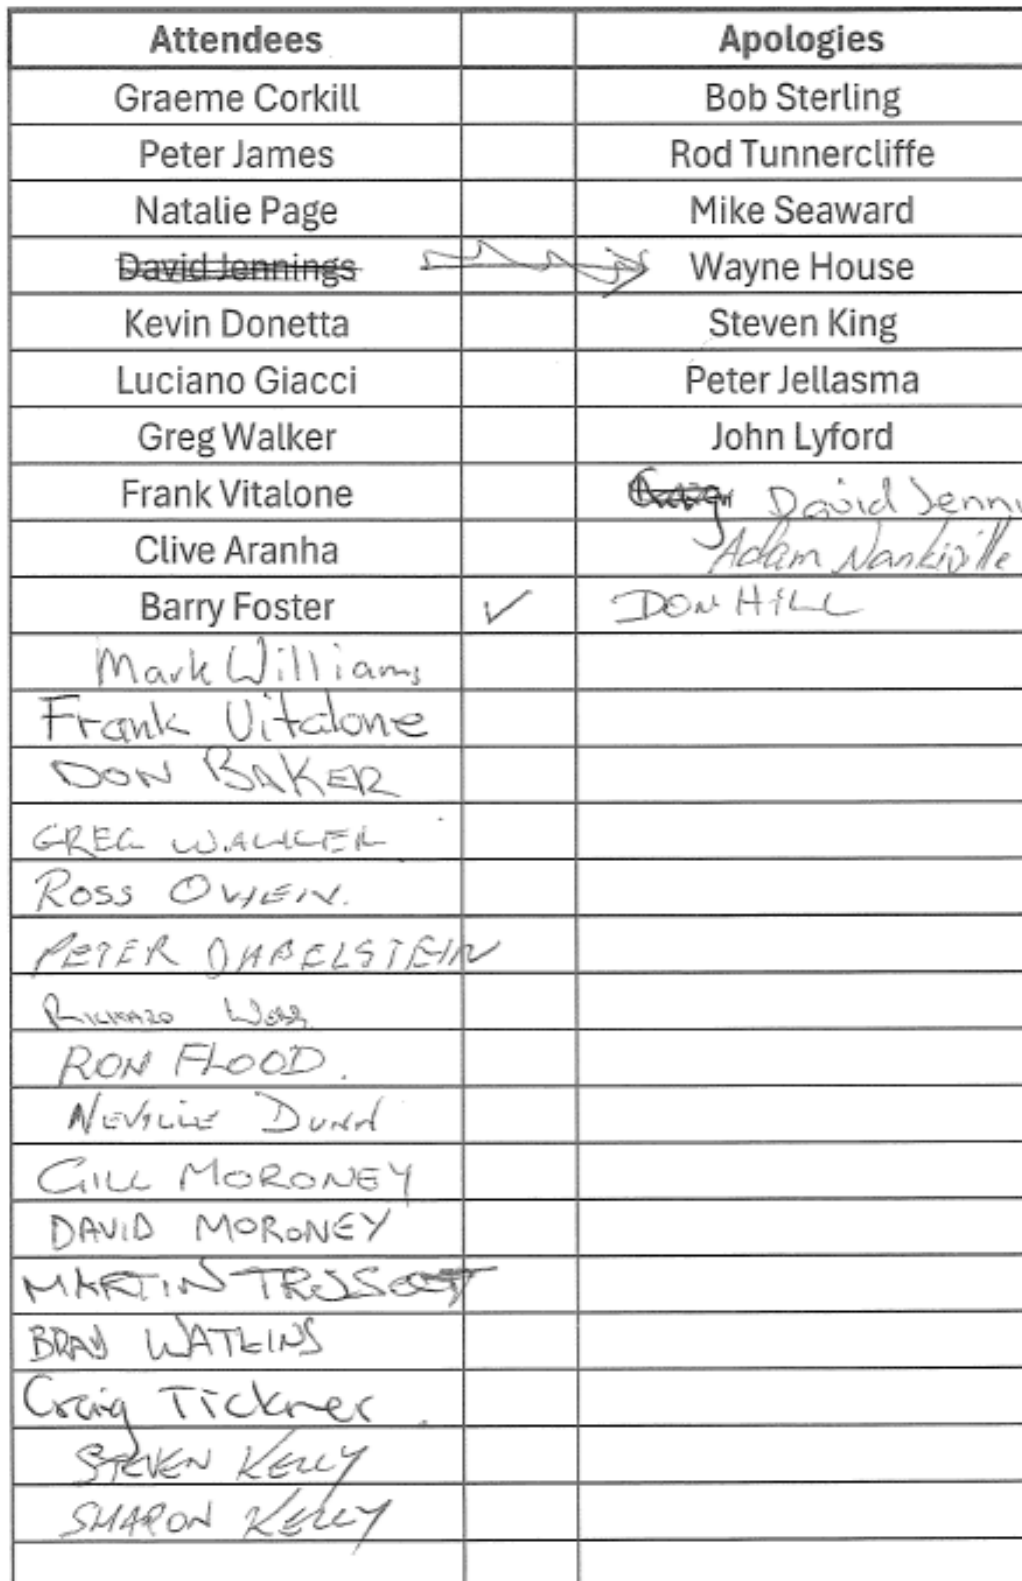 Attendees Apologies
Graeme Corkill Bob Sterling
Peter James Rod Tunnercliffe
Natalie Page Mike Seaward
David Jennings Wayne House
Kevin Donetta Steven King
Luciano Giacci Peter Jellasma
Greg Walker John Lyford
Frank Vitalone Craig David Jenni
Clive Aranha Adam Nankiville
Barry Foster ✓ DON HILL
Mark Williams
Frank Vitalone
DON BAKER
GREG WALKER
ROSS OWEN.
PETER DABELSTEIN
RICHARD
RON FLOOD.
NEVILLE DUNN
GILL MORONEY
DAVID MORONEY
MARTIN TRUSCOTT
BRAD WATKINS
Craig Tickner
STEVEN KELLY
SHARON KELLY